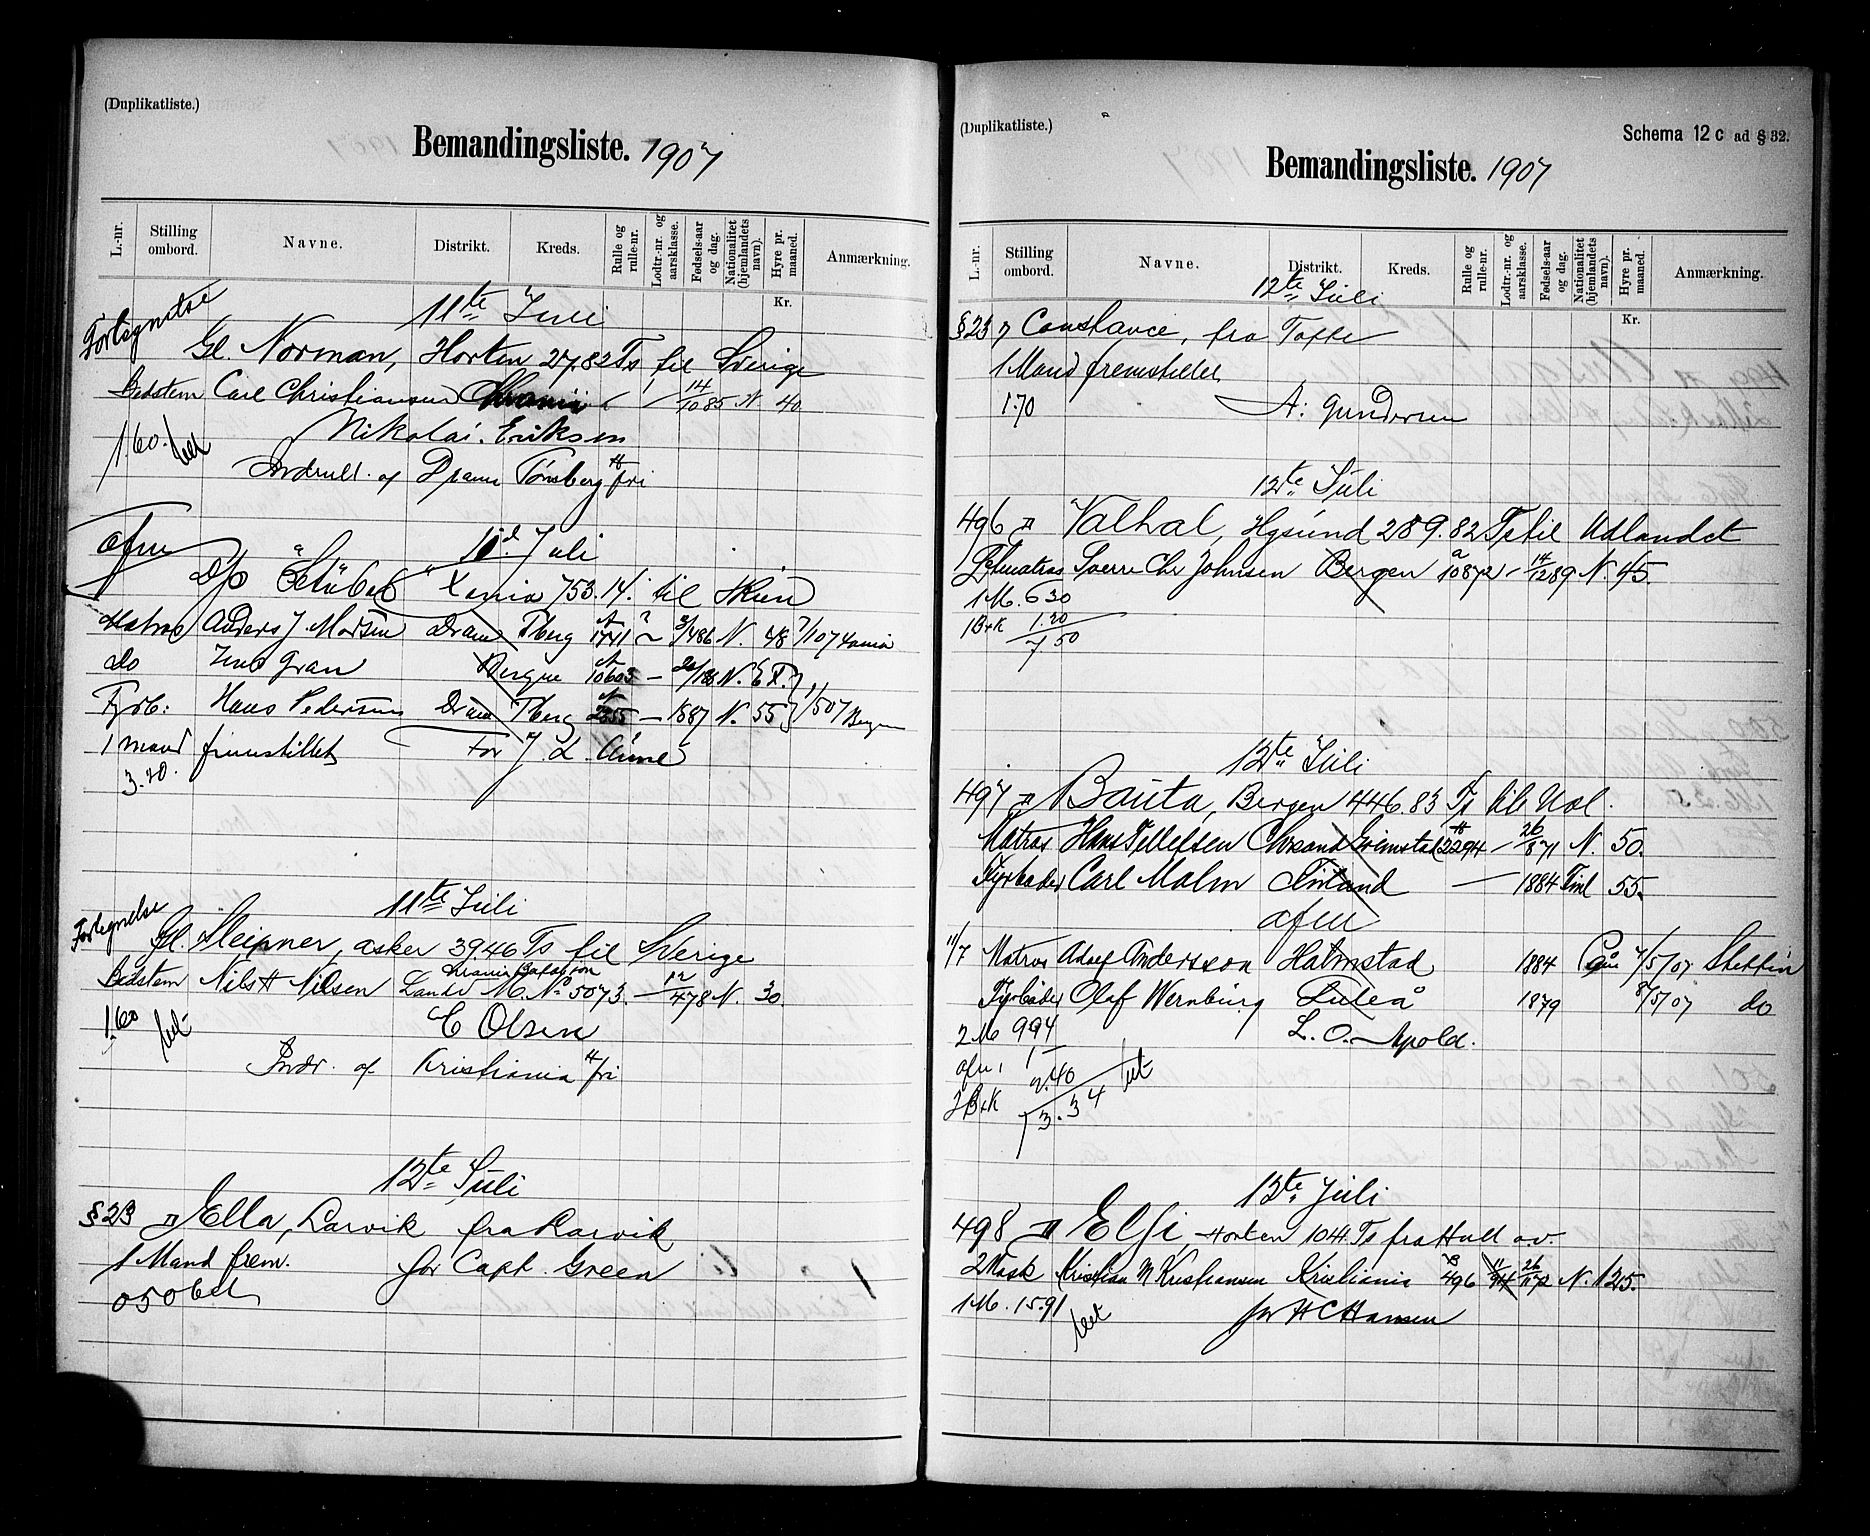 (Duplikatliste.)
Bemandingsliste. 1907
L.-nr.
Stilling ombord.
Navne.
Distrikt.
Kreds.
Rulle og rulle-nr.
Lodtr.-nr. og aarsklasse.
Fødsels-aar og dag.
Nationalitet (hjemlandets navn).
Hyre pr. maaned.
Anmærkning.
Kr.
Fortegnelse
11te Juli
Gl. Norman, Horten 27,82 Ts til Sverige
Bedstem Carl Christiansen 14/10 85 N. 40
Nikolai Eriksen
1.60. bet
Indrull. af Dram Tønsberg fri
afm
11d. Juli
D/s "Stübel" Xania 753.14. til Skien
Matros Anders J Madsen Dram Tberg A 1441 3/4 86 N. 48 /107 Xania
do Jens Gran Bergen A 10603 – N.
Fyrb: Hans Pedersen Dram Tberg A 2355 – 1887 N. 55 1/507 Bergen
1 mand fremstillet for J. L.
3.20.
Fortegnelse
11te Juli
Gl. Sleipner, Asker 39.46 Ts til Sverige
Bedstem Nils H Nilsen Landv M. No 5073. – 12/4 78 N. 30
1.60 bet
C Olsen
Indr. af Kristiania fri
12te Juli
§ 23 Ella, Larvik fra Larvik
1 Mand frem. for Capt. Green
0 50 bet
(Duplikatliste.)
Schema 12 c ad § 32.
Bemandingsliste. 1907
L.-nr.
Stilling ombord.
Navne.
Distrikt.
Kreds.
Rulle og rulle-nr.
Lodtr.-nr. og aarsklasse.
Fødsels-aar og dag.
Nationalitet (hjemlandets navn).
Hyre pr. maaned.
Anmærkning.
Kr.
12te Juli
§ 23 Constance, fra Tofte
1 Mand fremstillet
1.70 A. Gundersen
12te Juli
496 Valhal, Hgsund 289.82 Ts til Udlandet
Letmatros Sverre Chr Johnsen Bergen a 10872 – 14/12 89 N. 45
1 M. 6 30
1 B+K 1.20
7 50
12te Juli
497 Bauta, Bergen 446.83 Ts til Udl.
Matros Hans Tellefsen Chrsand Grimstad 2294 – 26/8 71 N. 50.
Fyrbøder Carl Malm Finland – 1884 Finl 55.
afm
11/7 Matros Adolf Andersson Halmstad 1884 7/5/07 Stettin
Fyrbøder Olaf Wernburg Luleå 1879 8/5/07 do
2 M 9 94
L. O. Apold.
afm 1 –
2 B+K 2.40
13.34 bet
12te Juli
498 Elfi, Horten 1041 Ts fra Hull av.
2 Mask Kristian M Kristiansen Kristiania 496 26/1 72 N. 125.
1 M. 15.91 bet
for H C Hansen